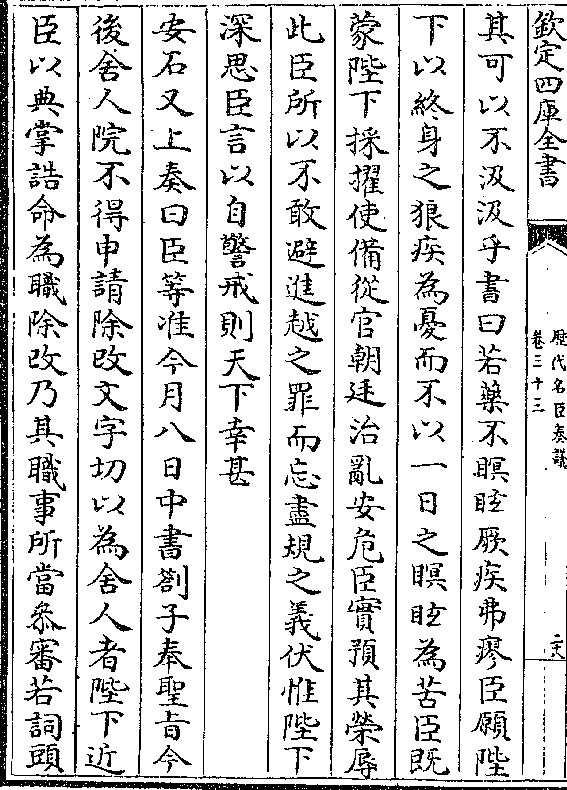 欽定四庫全書
歷代名臣奏議
卷三十三
二十八
其可以不汲汲乎書曰若藥不瞑眩厥疾弗瘳臣願陛
下以終身之狼疾為憂而不以一日之瞑眩為苦臣既
蒙陛下採擢使備從官朝廷治亂安危臣實預其榮辱
此臣所以不敢避進越之罪而忘盡規之義伏惟陛下
深思臣言以自警戒則天下幸甚
安石又上奏曰臣等准今月八日中書劄子奉聖旨今
後舍人院不得申請除改文字切以為舍人者陛下近
臣以典掌誥命為職除改乃其職事所當叅審若詞頭